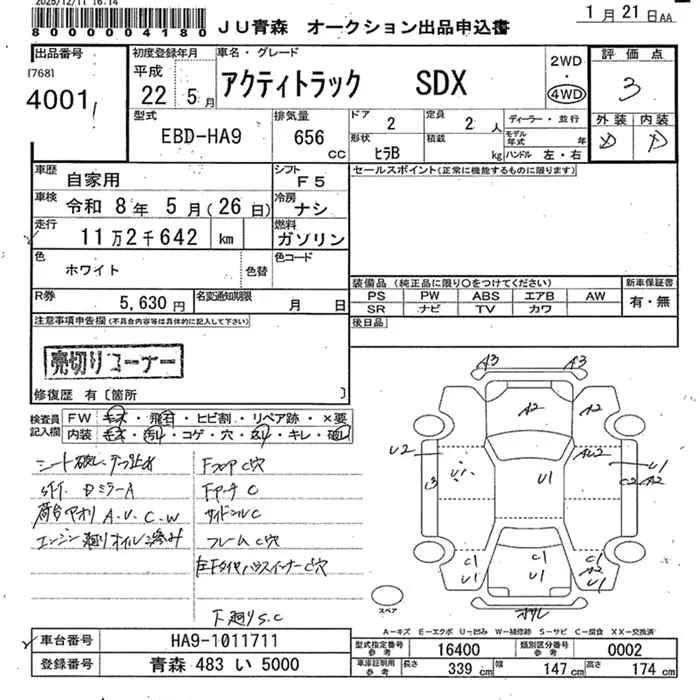 2025/12/11 16:14
8000000004180
JU青森 オークション出品申込書
1月21日AA
出品番号
[768]
4001
初度登録年月
平成
22 5月
車名・グレード
アクティトラック SDX
2WD
・
4WD
評価点
3
外装 内装
D D
型式
EBD-HA9
排気量
656
CC
ドア
2
定員
2 人
形状
ﾋﾗB
積載
kg
ディーラー・並行
モデル年式 年
ハンドル 左・右
車歴
自家用
シフト
F5
車検
令和 8年 5月(26日)
冷房
ナシ
走行
11万2千642 km
燃料
ガソリン
色
ホワイト
色替
色コード
R券
5,630円
名変通知期限
月 日
セールスポイント(正常に機能するものに限ります)
装備品 (純正品に限り○をつけてください)
PS PW ABS エアB AW
SR ナビ TV カワ
新車保証書
有・無
後日品
注意事項申告欄(不具合内容等は具体的に記入して下さい)
売切りコーナー
修復歴 有〔箇所 〕
検査員記入欄
FW キズ・飛石・ヒビ割・リペア跡・×要
内装 キズ・汚れ・コゲ・穴・スレ・キレ・破レ
シート破レ テープ止め
S/ft. DミラーA
荷台アオリ A.U.C.W
エンジン廻りオイル滲み
FフロアC穴
FアーチC
サイドシルC
フレームC穴
下廻りS.C
A3 A3
A2 A2
U2 U1 U1 AU2 U1
C2 A2
C1 U1 C1 U1 C1 A2 U1
スペア
A-キズ E-エクボ U-凹み W-補修跡 S-サビ C-腐食 XX-交換済
車台番号
HA9-1011711
登録番号
青森 483 い 5000
型式指定番号 参考
16400
類別区分番号 参考
0002
車庫証明用 参考
長さ 339 cm 幅 147 cm 高さ 174 cm